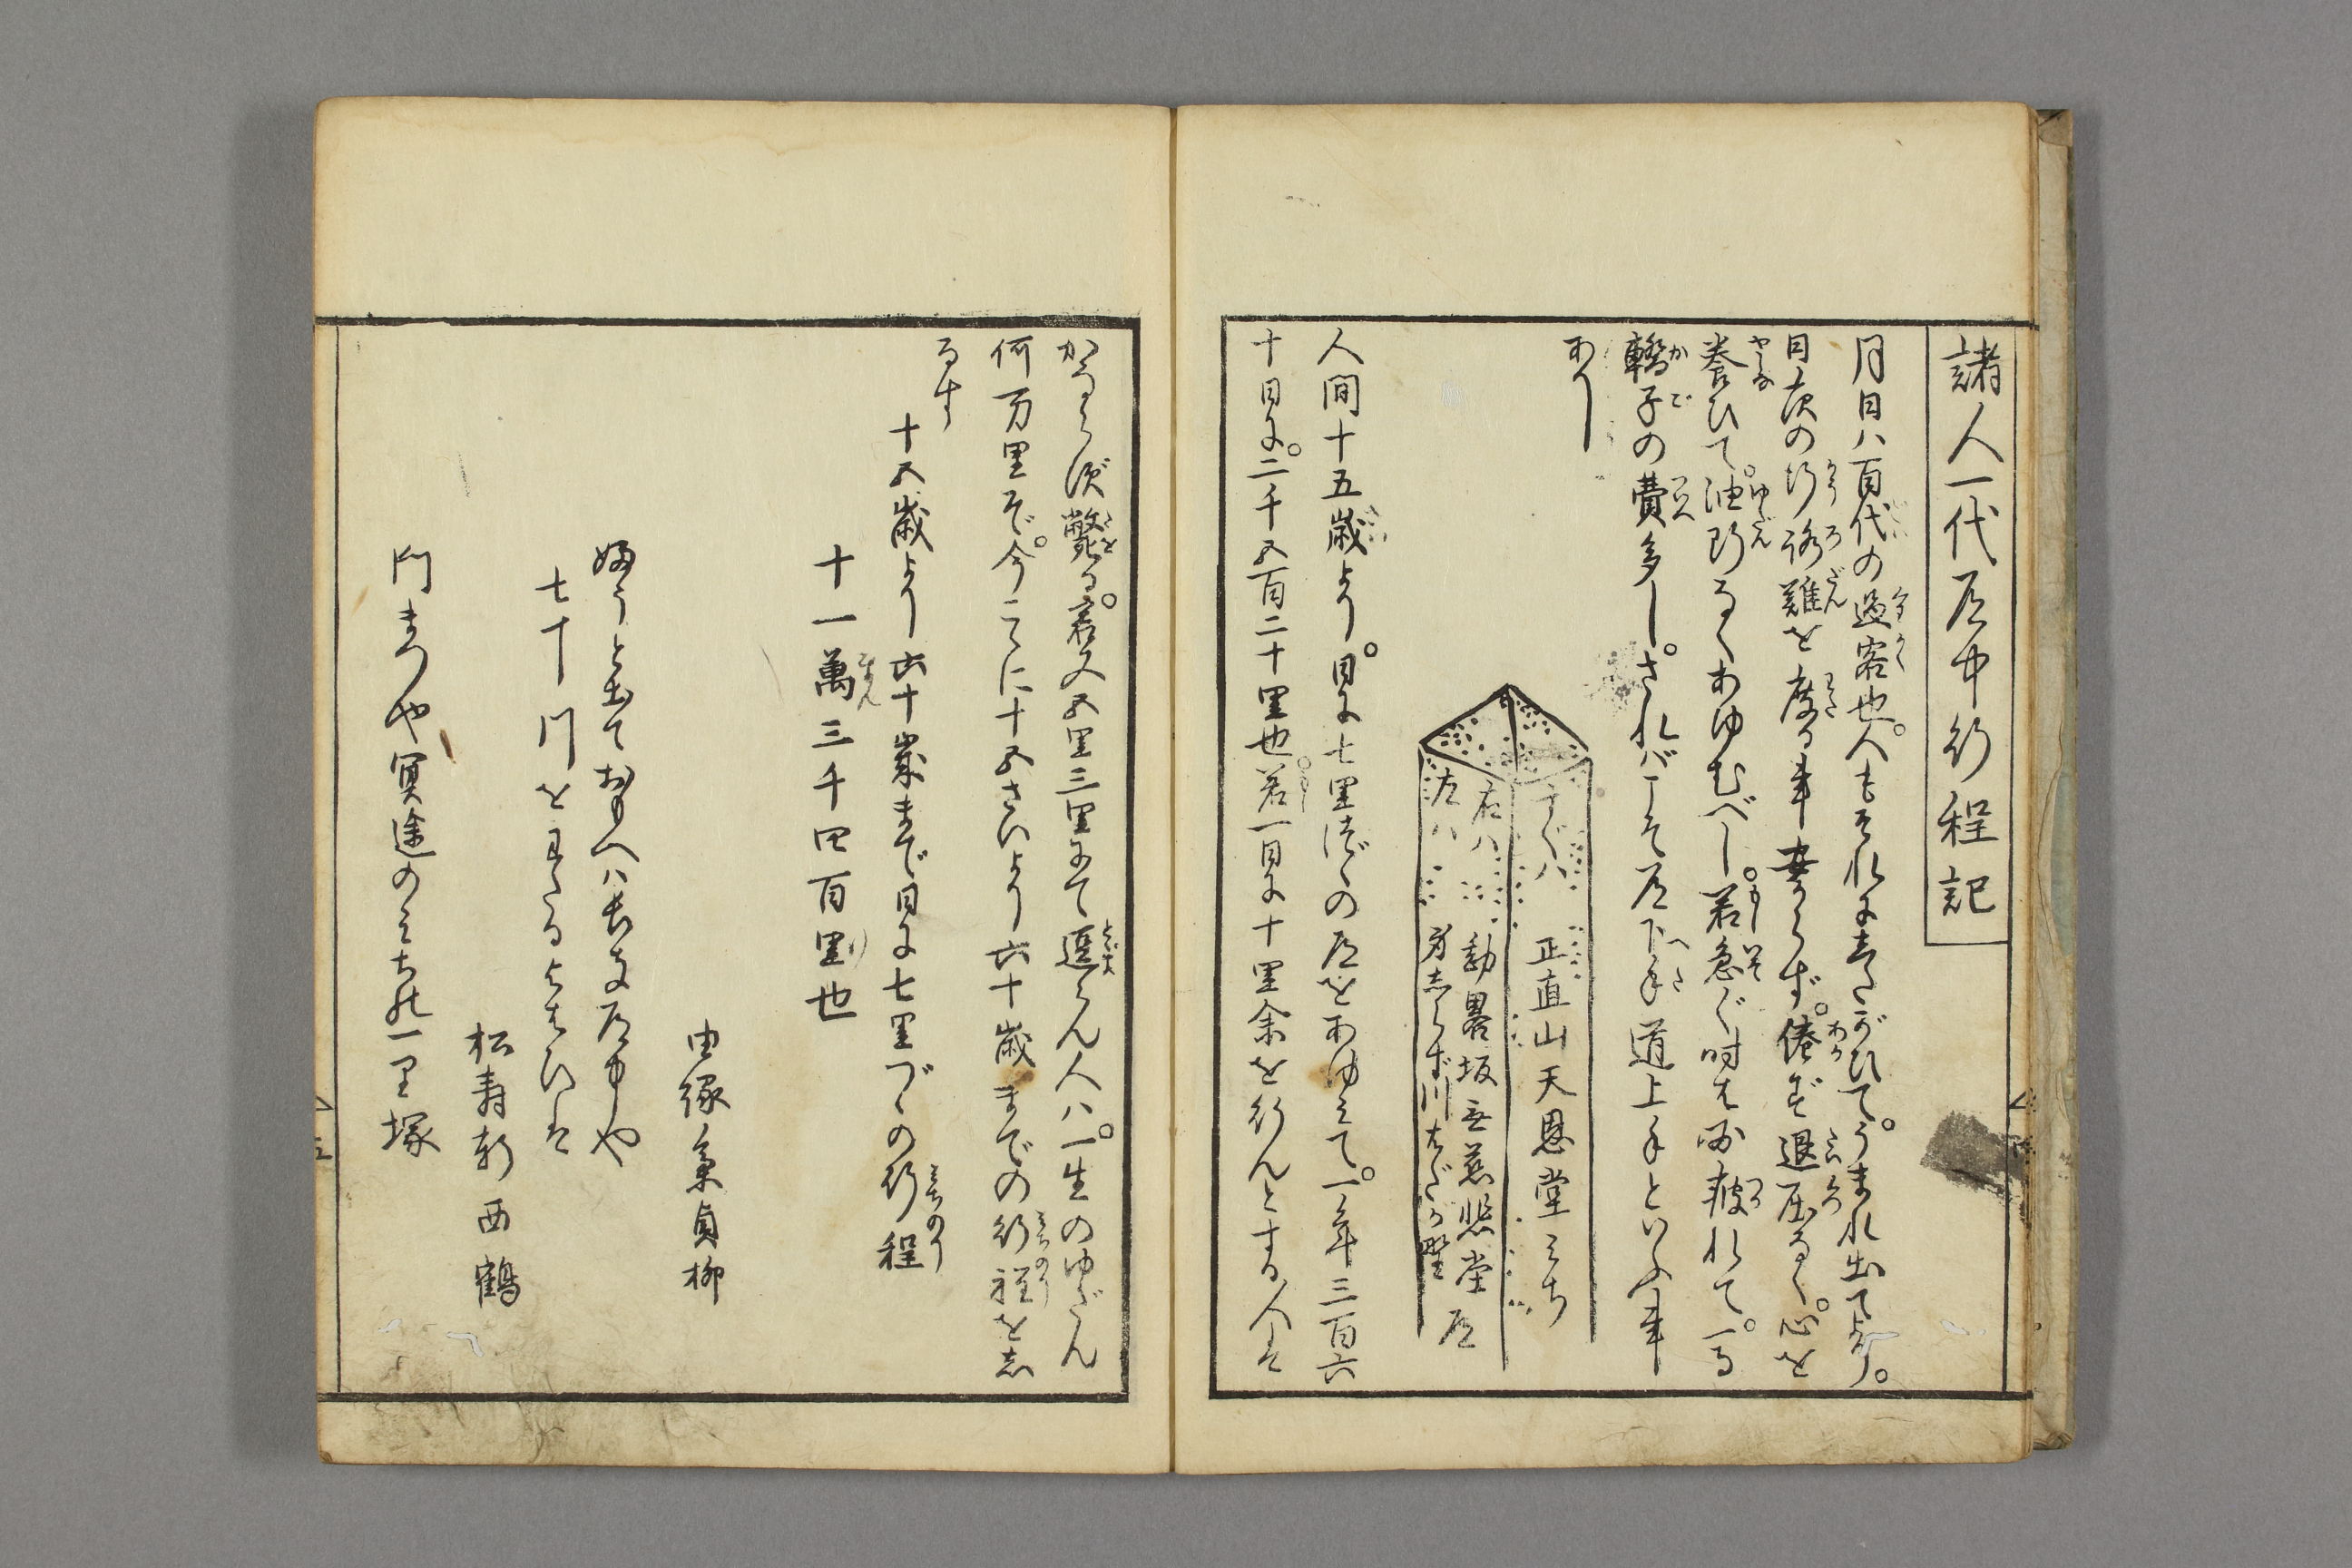 諸人一代道中行程記
月日ハ百代の過客也。人もそれにしたがひて。うまれ出てより。
日夜の行路難を度る事安からず。倦ず退屈なく。心を
養ひて。油断なくあゆむべし。若急ぐ時は必疲れて。一馬
轎子の費多し。されバこそ道下手道上手といふ事
あり
すぐハ 正直山天恩堂みち
右ハ 勘畧坂無慈悲堂道
左ハ 身しらず川はだか野
人間十五歳より。日に七里づゝの道をあゆみて。一年三百六
十日に。二千五百二十里也。若一日に十里余を行んとする人は
かならず斃る。若又五里三里にて逗らん人ハ。一生のゆだん
何万里ぞ。今こゝに十五さいより六十歳までの行程を志
るす
十五歳より六十歳まで日に七里づゝの行程
十一萬三千四百里也
由縁斎貞柳
ふうと出ておもへハ長き道中や
七十川をわたるよはひは
松寿軒西鶴
門まつや冥途のみちの一里塚
五